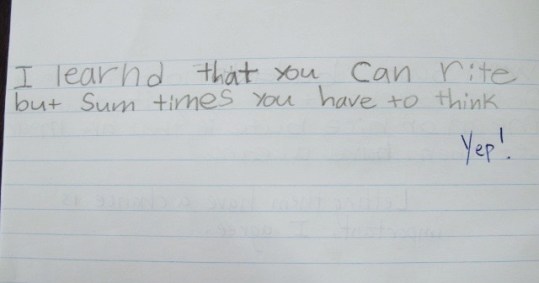 I learnd that you Can rite
but Sum times you have to think
Yep!